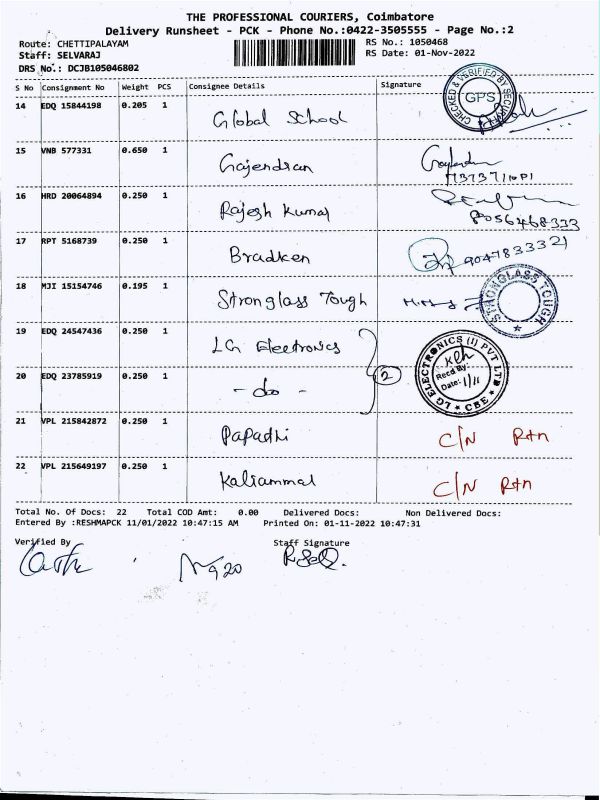 THE PROFESSIONAL COURIERS, Coimbatore
Delivery Runsheet - PCK - Phone No.:0422-3505555 - Page No.:2
Route: CHETTIPALAYAM RS No.: 1050468
Staff: SELVARAJ RS Date: 01-Nov-2022
DRS No.: DCJB105046802
S No Consignment No Weight PCS Consignee Details Signature
14 EDQ 15844198 0.205 1 Global School CHECKED & VERIFIED BY SECURITY GPS
15 VNB 577331 0.650 1 Gajendran
16 HRD 20064894 0.250 1 Rajesh Kumar 8056468333
17 RPT 5168739 0.250 1 Bradken 9047833321
18 MJI 15154746 0.195 1 Stronglass Tough STRONGLASS TOUGH
19 EDQ 24547436 0.250 1 LG Electronics LG ELECTRONICS (I) PVT LTD CBE Recd By: Date: 1/11
20 EDQ 23785919 0.250 1 - do - 2
21 VPL 215842872 0.250 1 Papathi C/N Rtn
22 VPL 215649197 0.250 1 Kaliammal C/N Rtn
Total No. Of Docs: 22 Total COD Amt: 0.00 Delivered Docs: Non Delivered Docs:
Entered By :RESHMAPCK 11/01/2022 10:47:15 AM Printed On: 01-11-2022 10:47:31
Verified By Staff Signature